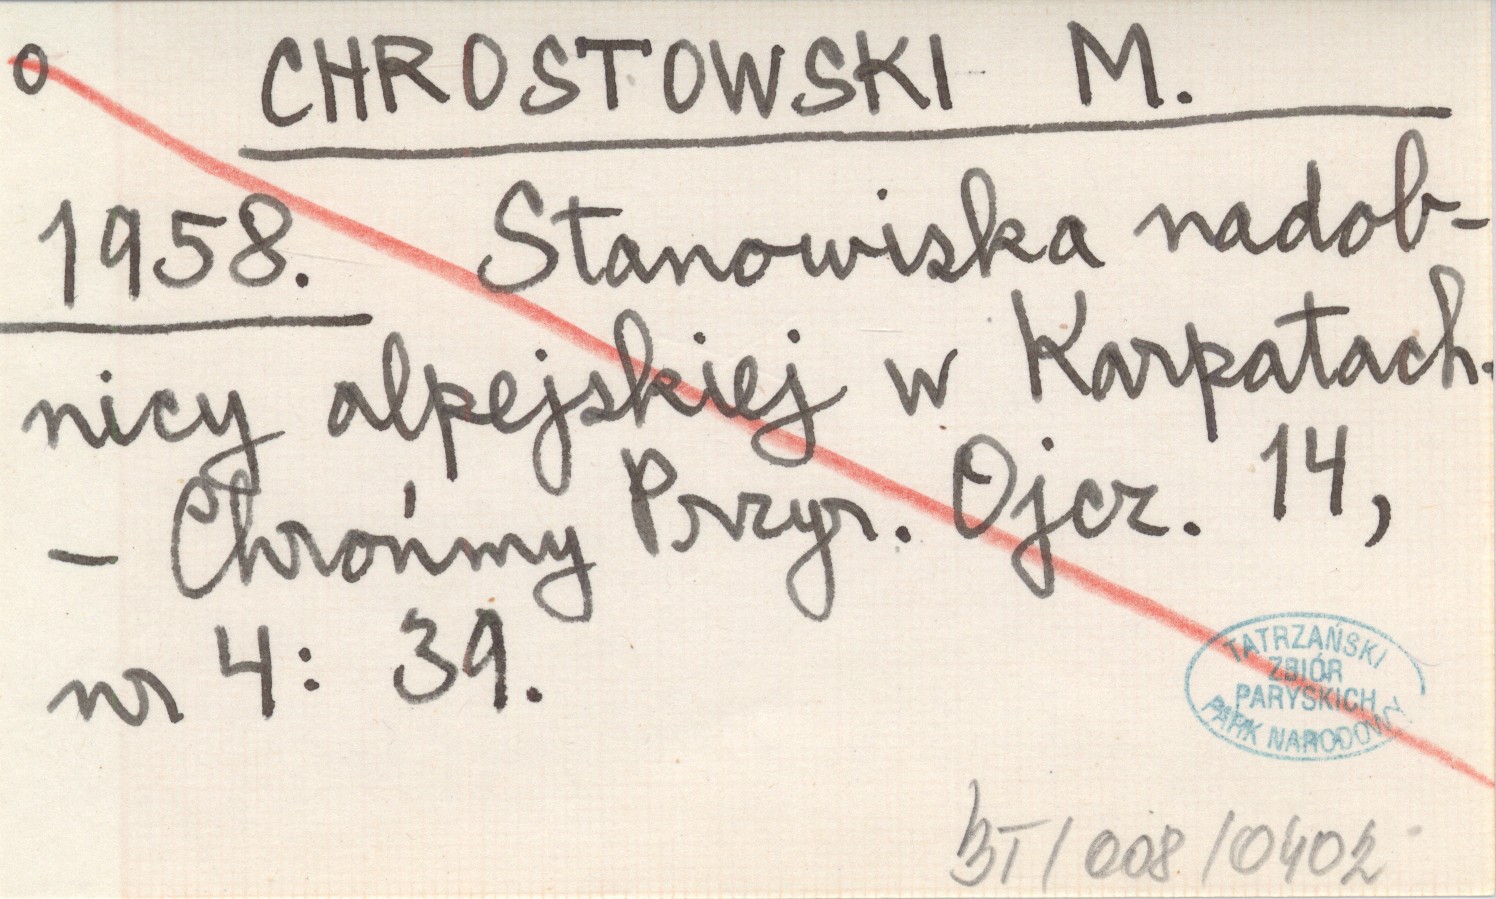 o CHROSTOWSKI M.
1958. Stanowiska nadob-
nicy alpejskiej w Karpatach.
– Chrońmy Przyr. Ojcz. 14,
nr 4: 39.
TATRZAŃSKI
ZBIÓR
PARYSKICH
PARK NARODOWY
BT/008/0402